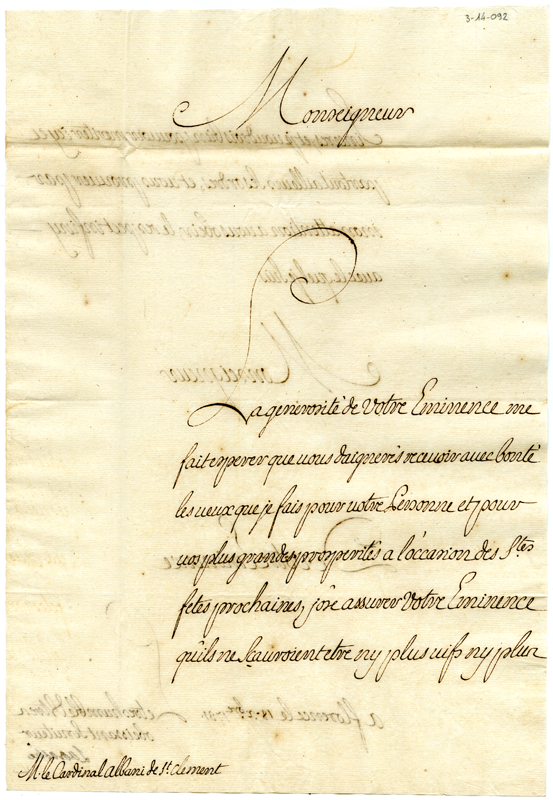 3-14-092
Monseigneur
La generosité de Votre Eminence me
fait esperer que vous daignerés recevoir avec bonté
les veux que je fais pour votre Personne et pour
vos plus grandes prosperités a l'occasion des S.tes
fetes prochaines, j'ose assurer Votre Eminence
qu'ils ne scauroient etre ny plus vifs ny plus
M. le Cardinal albani de S.t clement